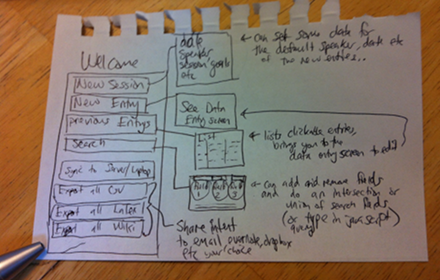 Welcome
New Session
New Entry
previous Entrys
search
Sync to Server/Laptop
Export all CSV
Export all LaTex
Export all Wiki
date
speaker
session goals
etc
← can set some data for
the default speaker, date etc
of new entries..
See Data
Entry screen
List
← lists clickable entries,
brings you to the
data entry screen to edit
← can add and remove fields
and do an intersection or
union of search fields
(or type in javascript
query)
Share Intent
to email, dropbox
etc your choice